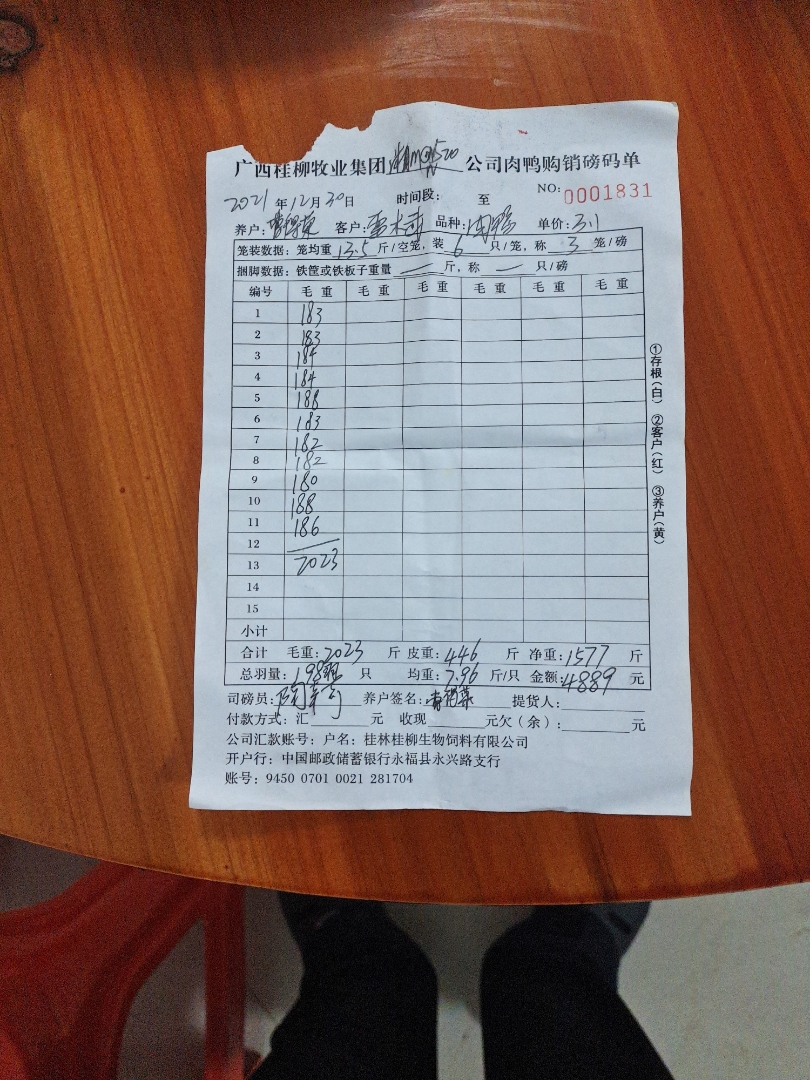 广西桂柳牧业集团 公司肉鸭购销磅码单
2021年12月30日 时间段: 至 NO: 0001831
养户: 客户: 品种: 肉鸭 单价: 3.1
笼装数据: 笼均重 13.5 斤/空笼, 装 6 只/笼, 称 3 笼/磅
捆脚数据: 铁筐或铁板子重量 — 斤, 称 — 只/磅
编号 毛重 毛重 毛重 毛重 毛重 毛重
1 183
2 183
3 184
4 184
5 188
6 183
7 182
8 182
9 180
10 188
11 186
12
13 2023
14
15
小计
合计 毛重: 2023 斤 皮重: 446 斤 净重: 1577 斤
总羽量: 198 只 均重: 7.96 斤/只 金额: 4889 元
司磅员: 养户签名: 提货人:
付款方式: 汇 元 收现 元欠(余): 元
公司汇款账号: 户名: 桂林桂柳生物饲料有限公司
开户行: 中国邮政储蓄银行永福县永兴路支行
账号: 9450 0701 0021 281704
①存根(白) ②客户(红) ③养户(黄)